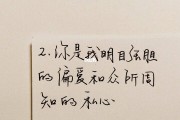 2.你是我明目张胆
的偏爱和众所周
知的私心